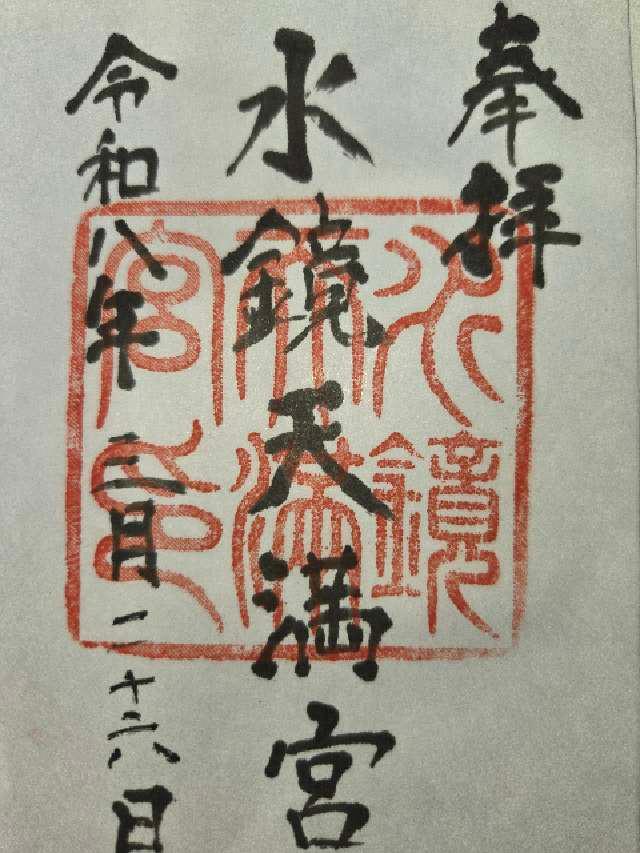 奉拝
水鏡天満宮
令和八年三月二十六日
水鏡
天満
宮印